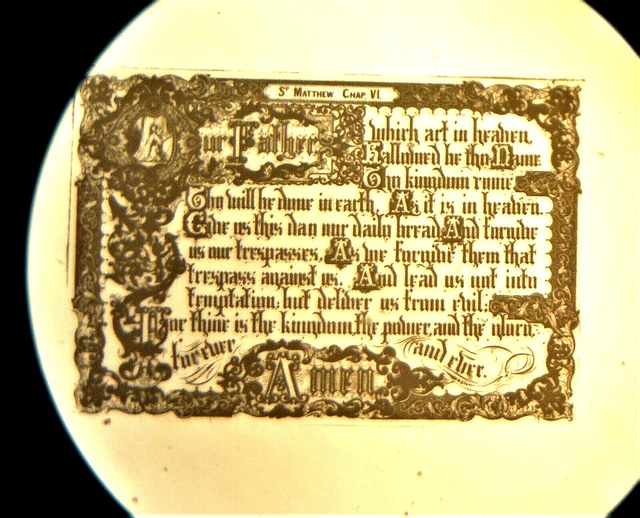 St MATTHEW CHAP. VI.
Our Father
which art in heaven,
Hallowed be thy Name
Thy kingdom come
Thy will be done in earth, As it is in heaven.
Give us this day our daily bread And forgive
us our trespasses, As we forgive them that
trespass against us, And lead us not into
temptation; but deliver us from evil:
For thine is the kingdom, the power, and the glory,
for ever and ever.
Amen